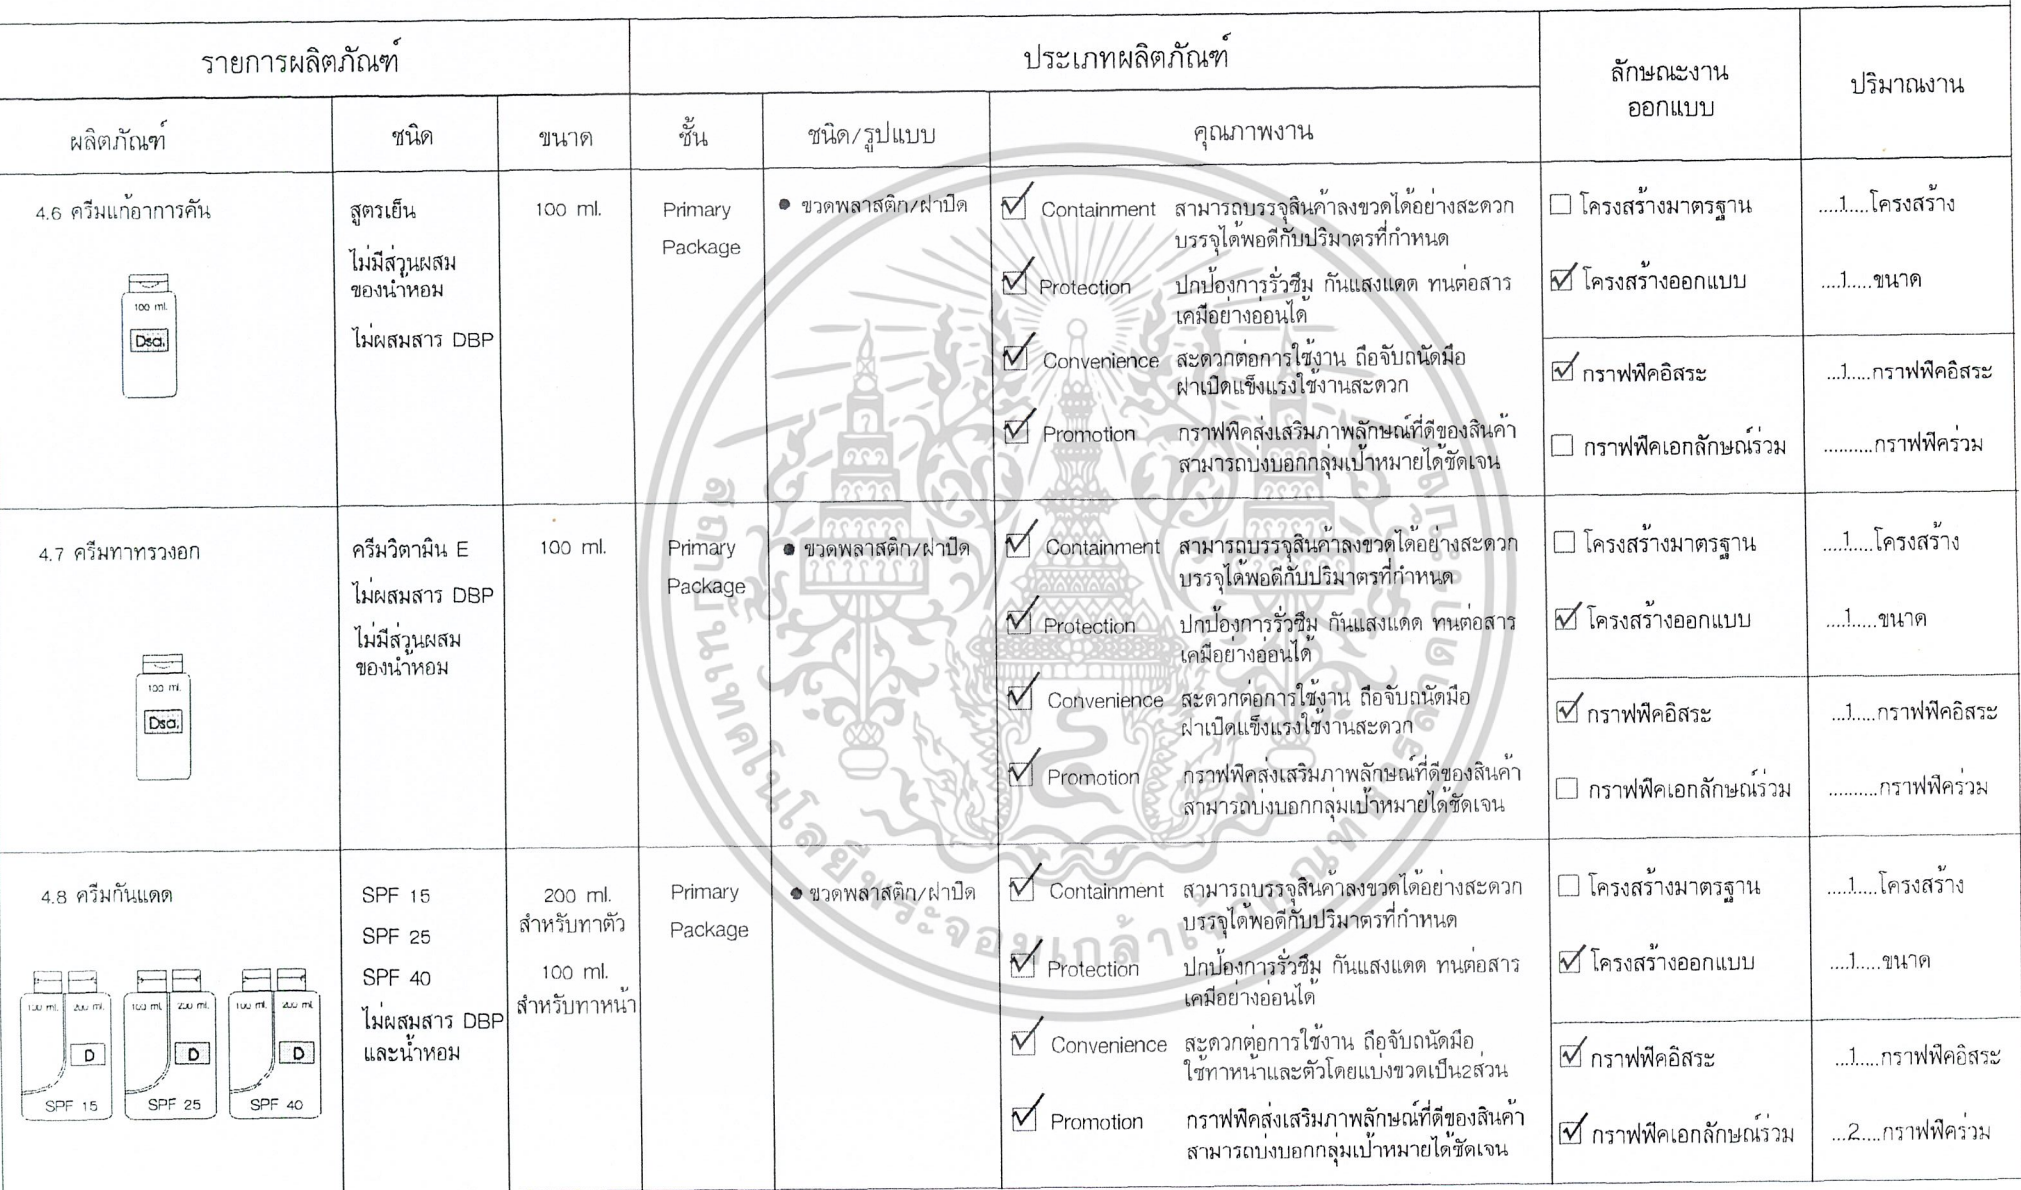 รายการผลิตภัณฑ์ ประเภทผลิตภัณฑ์ ลักษณะงาน ปริมาณงาน
ออกแบบ
ผลิตภัณฑ์ ชนิด ขนาด ชั้น ชนิด/รูปแบบ คุณภาพงาน
4.6 ครีมแก้อาการคัน
100 ml.
Dsa.
สูตรเย็น
ไม่มีส่วนผสม
ของน้ำหอม
ไม่ผสมสาร DBP
100 ml.
Primary
Package
● ขวดพลาสติก/ฝาปิด
☑ Containment สามารถบรรจุสินค้าลงขวดได้อย่างสะดวก
บรรจุได้พอดีกับปริมาตรที่กำหนด
☑ Protection ปกป้องการรั่วซึม กันแสงแดด ทนต่อสาร
เคมีอย่างอ่อนได้
☑ Convenience สะดวกต่อการใช้งาน ถือจับถนัดมือ
ฝาเปิดแข็งแรงใช้งานสะดวก
☑ Promotion กราฟฟิคส่งเสริมภาพลักษณ์ที่ดีของสินค้า
สามารถบ่งบอกกลุ่มเป้าหมายได้ชัดเจน
☐ โครงสร้างมาตรฐาน ....1.....โครงสร้าง
☑ โครงสร้างออกแบบ ....1.....ขนาด
☑ กราฟฟิคอิสระ ...1.....กราฟฟิคอิสระ
☐ กราฟฟิคเอกลักษณ์ร่วม ..........กราฟฟิคร่วม
4.7 ครีมทาทรวงอก
100 ml.
Dsa.
ครีมวิตามิน E
ไม่ผสมสาร DBP
ไม่มีส่วนผสม
ของน้ำหอม
100 ml.
Primary
Package
● ขวดพลาสติก/ฝาปิด
☑ Containment สามารถบรรจุสินค้าลงขวดได้อย่างสะดวก
บรรจุได้พอดีกับปริมาตรที่กำหนด
☑ Protection ปกป้องการรั่วซึม กันแสงแดด ทนต่อสาร
เคมีอย่างอ่อนได้
☑ Convenience สะดวกต่อการใช้งาน ถือจับถนัดมือ
ฝาเปิดแข็งแรงใช้งานสะดวก
☑ Promotion กราฟฟิคส่งเสริมภาพลักษณ์ที่ดีของสินค้า
สามารถบ่งบอกกลุ่มเป้าหมายได้ชัดเจน
☐ โครงสร้างมาตรฐาน ....1.....โครงสร้าง
☑ โครงสร้างออกแบบ ....1.....ขนาด
☑ กราฟฟิคอิสระ ...1.....กราฟฟิคอิสระ
☐ กราฟฟิคเอกลักษณ์ร่วม ..........กราฟฟิคร่วม
4.8 ครีมกันแดด
100 ml. 200 ml. 100 ml. 200 ml. 100 ml. 200 ml.
D D D
SPF 15 SPF 25 SPF 40
SPF 15
SPF 25
SPF 40
ไม่ผสมสาร DBP
และน้ำหอม
200 ml.
สำหรับทาตัว
100 ml.
สำหรับทาหน้า
Primary
Package
● ขวดพลาสติก/ฝาปิด
☑ Containment สามารถบรรจุสินค้าลงขวดได้อย่างสะดวก
บรรจุได้พอดีกับปริมาตรที่กำหนด
☑ Protection ปกป้องการรั่วซึม กันแสงแดด ทนต่อสาร
เคมีอย่างอ่อนได้
☑ Convenience สะดวกต่อการใช้งาน ถือจับถนัดมือ
ใช้ทาหน้าและตัวโดยแบ่งขวดเป็น2ส่วน
☑ Promotion กราฟฟิคส่งเสริมภาพลักษณ์ที่ดีของสินค้า
สามารถบ่งบอกกลุ่มเป้าหมายได้ชัดเจน
☐ โครงสร้างมาตรฐาน ....1.....โครงสร้าง
☑ โครงสร้างออกแบบ ....1.....ขนาด
☑ กราฟฟิคอิสระ ...1.....กราฟฟิคอิสระ
☑ กราฟฟิคเอกลักษณ์ร่วม ...2....กราฟฟิคร่วม
สถาบันเทคโนโลยีพระจอมเกล้าเจ้าคุณทหารลาดกระบัง